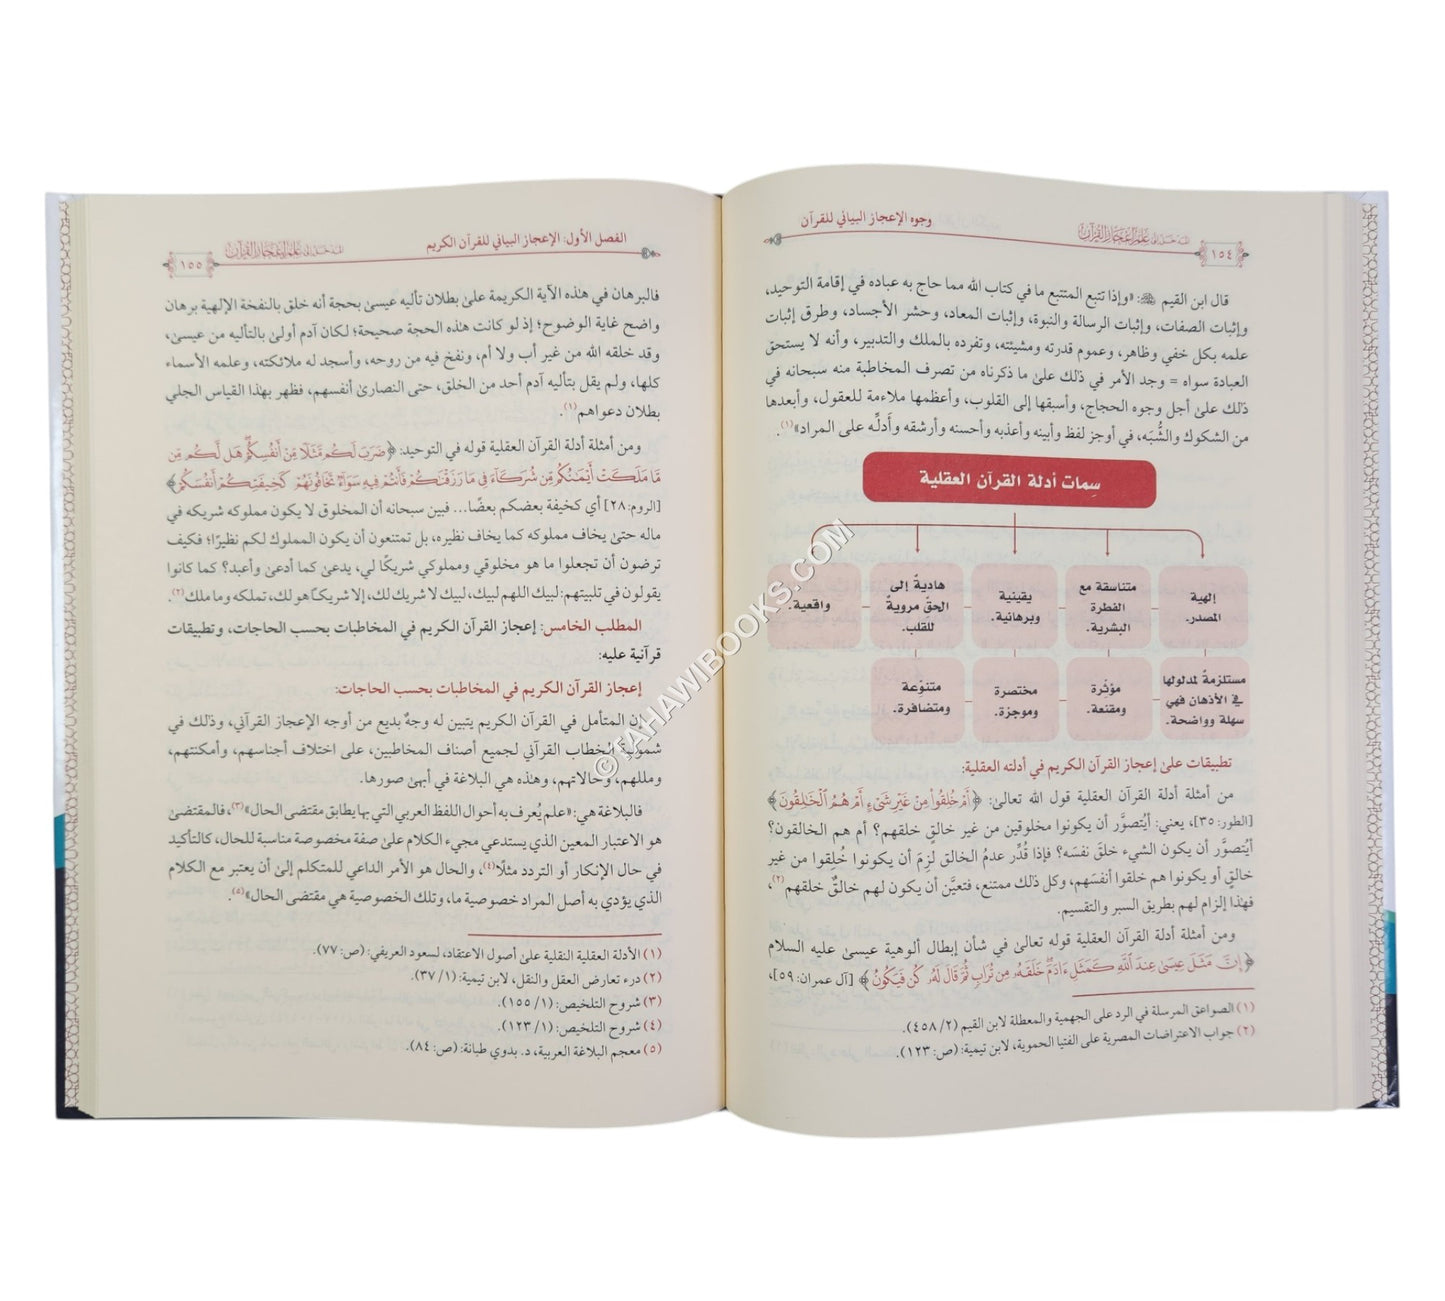 وجوه الإعجاز البياني للقرآن
المدخل إلى علم إعجاز القرآن
١٥٤
قال ابن القيم ﵀: «وإذا تتبع المتتبع ما في كتاب الله مما حاج به عباده في إقامة التوحيد،
وإثبات الصفات، وإثبات الرسالة والنبوة، وإثبات المعاد، وحشر الأجساد، وطرق إثبات
علمه بكل خفي وظاهر، وعموم قدرته ومشيئته، وتفرده بالملك والتدبير، وأنه لا يستحق
العبادة سواه = وجد الأمر في ذلك علىٰ ما ذكرناه من تصرف المخاطبة منه سبحانه في
ذلك علىٰ أجل وجوه الحجاج، وأسبقها إلى القلوب، وأعظمها ملاءمة للعقول، وأبعدها
من الشكوك والشُّبَه، في أوجز لفظ وأبينه وأعذبه وأحسنه وأرشقه وأَدلِّه على المراد»(١).
سِمات أدلة القرآن العقلية
إلهية المصدر.
متناسقة مع الفطرة البشرية.
يقينية وبرهانية.
هاديةٌ إلى الحقّ مرويةٌ للقلب.
واقعية.
مستلزمةٌ لمدلولها في الأذهان فهي سهلة وواضحة.
مؤثّرة ومقنعة.
مختصرة وموجزة.
متنوّعة ومتضافرة.
تطبيقات علىٰ إعجاز القرآن الكريم في أدلته العقلية:
من أمثلة أدلة القرآن العقلية قول الله تعالىٰ: ﴿أَمْ خُلِقُوا۟ مِنْ غَيْرِ شَىْءٍ أَمْ هُمُ ٱلْخَٰلِقُونَ﴾
[الطور: ٣٥]، يعني: أيُتصوَّر أن يكونوا مخلوقين من غير خالقٍ خلقهم؟ أم هم الخالقون؟
أيُتصوَّر أن يكون الشيء خلقَ نفسَه؟ فإذا قُدِّر عدمُ الخالق لزِمَ أن يكونوا خُلِقوا من غير
خالقٍ أو يكونوا هم خلقوا أنفسَهم، وكل ذلك ممتنع، فتعيَّن أن يكون لهم خالقٌ خلقهم(٢)،
فهذا إلزام لهم بطريق السبر والتقسيم.
ومن أمثلة أدلة القرآن العقلية قوله تعالىٰ في شأن إبطال ألوهية عيسىٰ عليه السلام
﴿إِنَّ مَثَلَ عِيسَىٰ عِندَ ٱللَّهِ كَمَثَلِ ءَادَمَ ۖ خَلَقَهُۥ مِن تُرَابٍ ثُمَّ قَالَ لَهُۥ كُن فَيَكُونُ﴾ [آل عمران: ٥٩]،
(١) الصواعق المرسلة في الرد على الجهمية والمعطلة لابن القيم (٢/ ٤٥٨).
(٢) جواب الاعتراضات المصرية على الفتيا الحموية، لابن تيمية: (ص: ١٢٣).
الفصل الأول: الإعجاز البياني للقرآن الكريم
المدخل إلى علم إعجاز القرآن
١٥٥
فالبرهان في هٰذه الآية الكريمة علىٰ بطلان تأليه عيسىٰ بحجة أنه خلق بالنفخة الإلهية برهان
واضح غاية الوضوح؛ إذ لو كانت هذه الحجة صحيحة؛ لكان آدم أولىٰ بالتأليه من عيسىٰ،
وقد خلقه الله من غير أب ولا أم، ونفخ فيه من روحه، وأسجد له ملائكته، وعلمه الأسماء
كلها، ولم يقل بتأليه آدم أحد من الخلق، حتى النصارىٰ أنفسهم، فظهر بهذا القياس الجلي
بطلان دعواهم(١).
ومن أمثلة أدلة القرآن العقلية قوله في التوحيد: ﴿ضَرَبَ لَكُم مَّثَلًا مِّنْ أَنفُسِكُمْ ۖ هَل لَّكُم مِّن
مَّا مَلَكَتْ أَيْمَٰنُكُم مِّن شُرَكَآءَ فِى مَا رَزَقْنَٰكُمْ فَأَنتُمْ فِيهِ سَوَآءٌ تَخَافُونَهُمْ كَخِيفَتِكُمْ أَنفُسَكُمْ﴾
[الروم: ٢٨] أي كخيفة بعضكم بعضًا... فبين سبحانه أن المخلوق لا يكون مملوكه شريكه في
ماله حتىٰ يخاف مملوكه كما يخاف نظيره، بل تمتنعون أن يكون المملوك لكم نظيرًا؛ فكيف
ترضون أن تجعلوا ما هو مخلوقي ومملوكي شريكًا لي، يدعىٰ كما أدعىٰ وأعبد؟ كما كانوا
يقولون في تلبيتهم: لبيك اللهم لبيك، لبيك لا شريك لك، إلا شريكًا هو لك، تملكه وما ملك(٢).
المطلب الخامس: إعجاز القرآن الكريم في المخاطبات بحسب الحاجات، وتطبيقات
قرآنية عليه:
إعجاز القرآن الكريم في المخاطبات بحسب الحاجات:
إن المتأمل في القرآن الكريم يتبين له وجهٌ بديع من أوجه الإعجاز القرآني، وذلك في
شمولية الخطاب القرآني لجميع أصناف المخاطبين، على اختلاف أجناسهم، وأمكنتهم،
ومللهم، وحالاتهم، وهذه هي البلاغة في أبهىٰ صورها.
فالبلاغة هي: «علم يُعرف به أحوال اللفظ العربي التي بها يطابق مقتضى الحال»(٣)، فالمقتضىٰ
هو الاعتبار المعين الذي يستدعي مجيء الكلام علىٰ صفة مخصوصة مناسبة للحال، كالتأكيد
في حال الإنكار أو التردد مثلًا(٤)، والحال هو الأمر الداعي للمتكلم إلى أن يعتبر مع الكلام
الذي يؤدي به أصل المراد خصوصية ما، وتلك الخصوصية هي مقتضى الحال»(٥).
(١) الأدلة العقلية النقلية علىٰ أصول الاعتقاد، لسعود العريفي: (ص: ٧٧).
(٢) درء تعارض العقل والنقل، لابن تيمية: (١/ ٣٧).
(٣) شروح التلخيص: (١/ ١٥٥).
(٤) شروح التلخيص: (١/ ١٢٣).
(٥) معجم البلاغة العربية، د. بدوي طبانة: (ص: ٨٤).
© FAHAWIBOOKS.COM